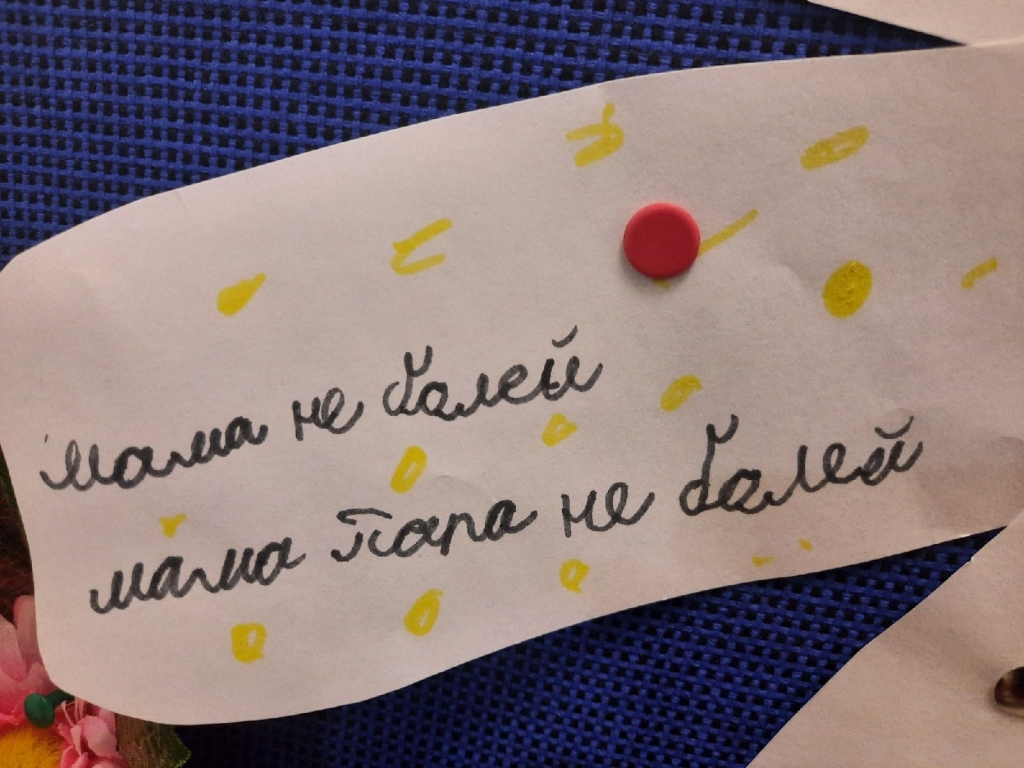 Мама не балей
мама Папа не балей